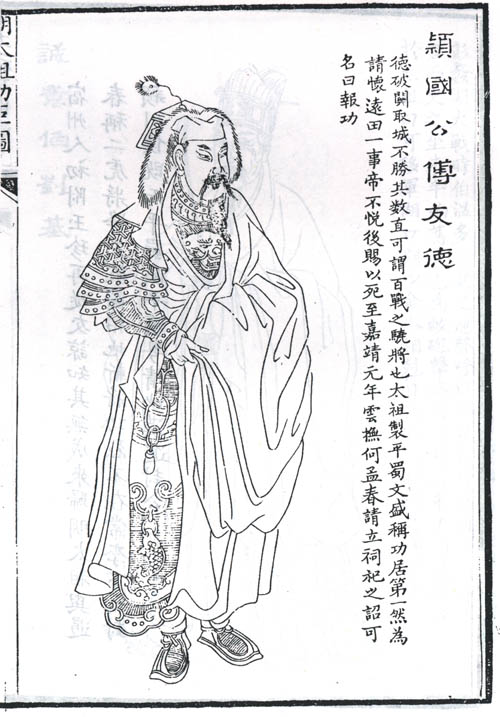 頴國公傅友德
德破關取城不勝其數直可謂百戰之驍將也太祖製平蜀文盛稱功居第一然為
請懷遠田一事帝不悅後賜以死至嘉靖元年雲撫何孟春請立祠祀之詔可
名曰報功
明太祖功臣圖